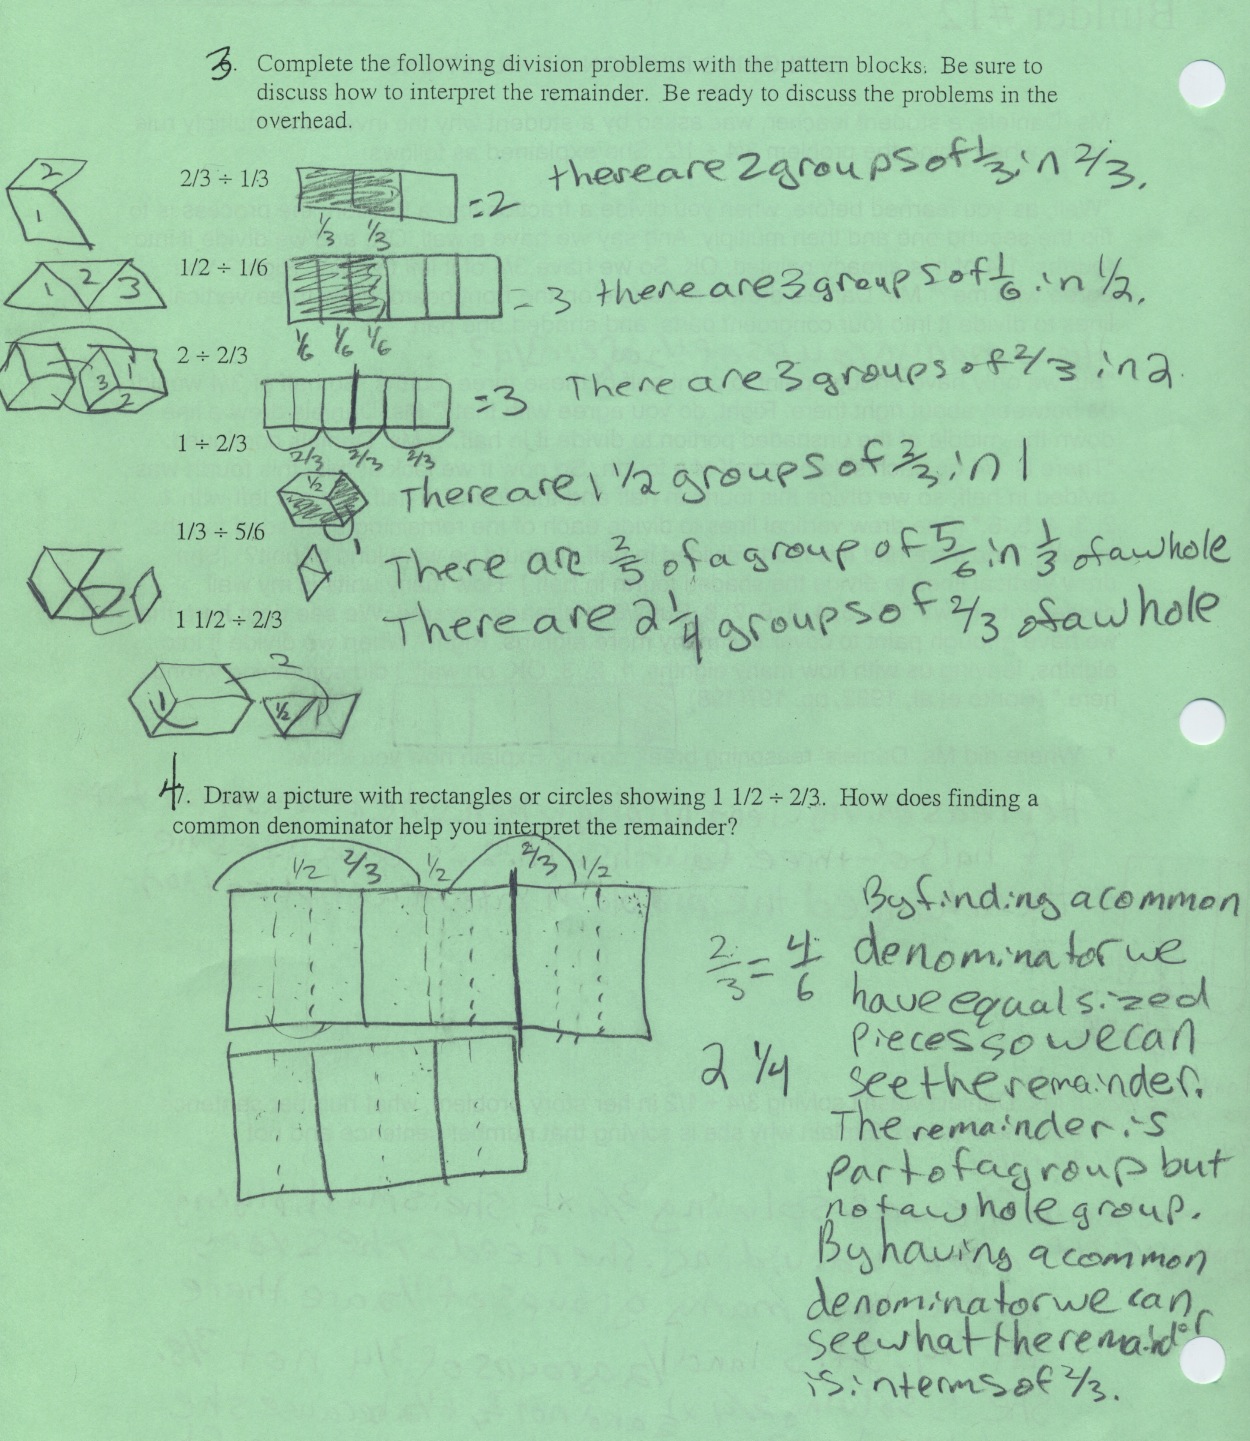 3. Complete the following division problems with the pattern blocks. Be sure to
discuss how to interpret the remainder. Be ready to discuss the problems in the
overhead.
2
1
2/3 ÷ 1/3
1/3 1/3
=2
there are 2 groups of 1/3 in 2/3.
1 2 3
1/2 ÷ 1/6
1/6 1/6 1/6
= 3
there are 3 groups of 1/6 in 1/2.
3 1
2
2 ÷ 2/3
=3
There are 3 groups of 2/3 in 2.
2/3 2/3 2/3
1 ÷ 2/3
1/2
There are 1 1/2 groups of 2/3 in 1
1/3 ÷ 5/6
There are 2/5 of a group of 5/6 in 1/3 of a whole
1 1/2 ÷ 2/3
There are 2 1/4 groups of 2/3 of a whole
2
1
1/2
4. Draw a picture with rectangles or circles showing 1 1/2 ÷ 2/3. How does finding a
common denominator help you interpret the remainder?
1/2 2/3 1/2 2/3 1/2
2/3 = 4/6
2 1/4
By finding a common
denominator we
have equal sized
pieces so we can
see the remainder.
The remainder is
part of a group but
not a whole group.
By having a common
denominator we can
see what the remaidor
is in terms of 2/3.